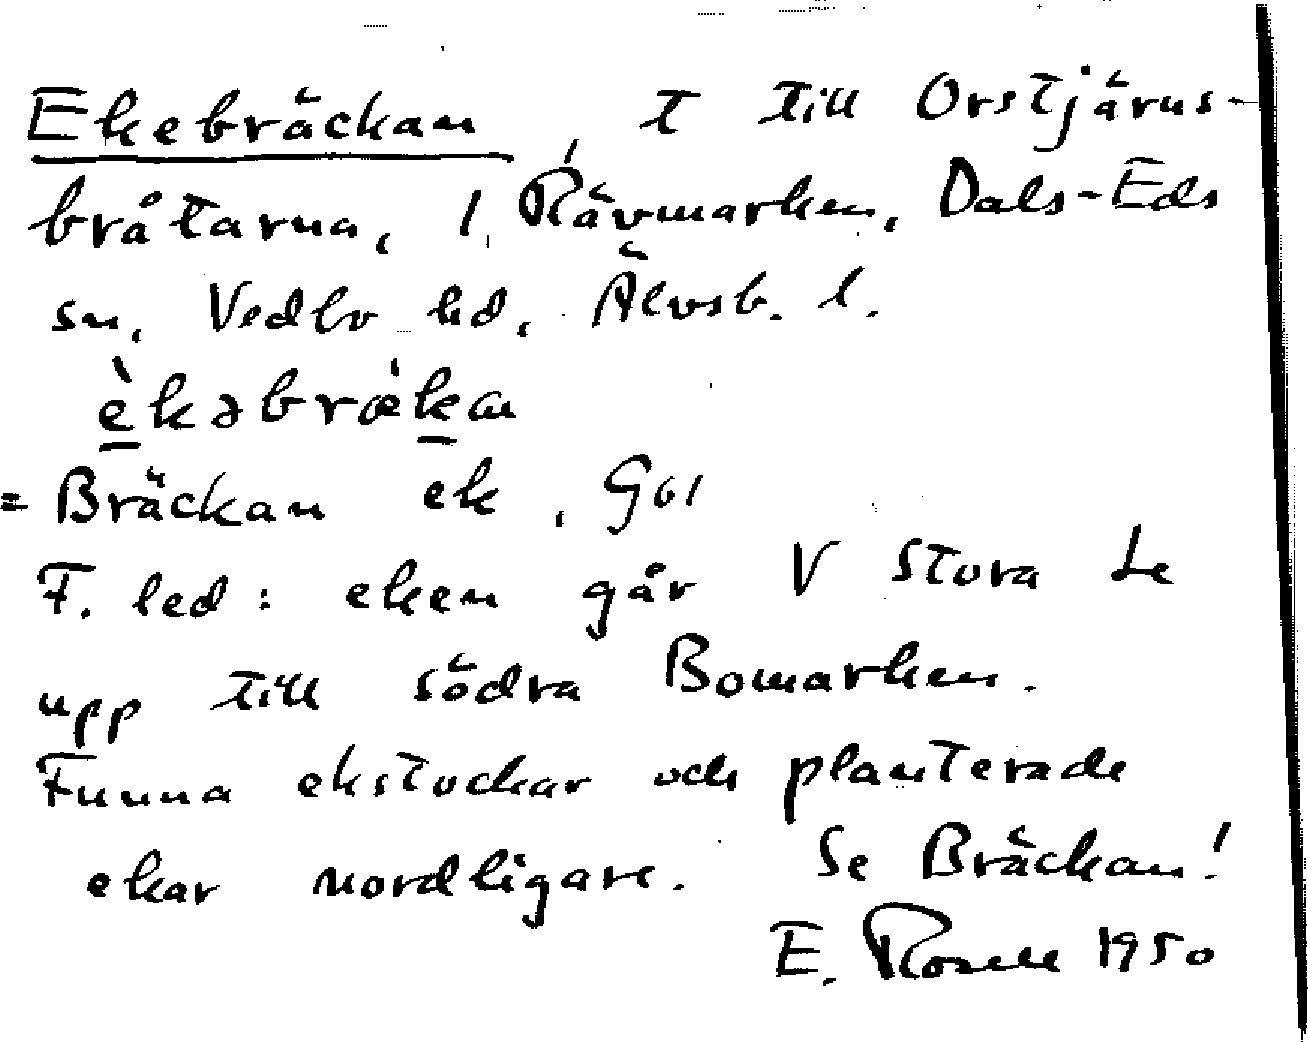 Ekebräckan, t till Orstjärns-
bråtarna, i Rävmarken, Dals-Eds
sn, Vedbo hd, Älvsb. l.
è̱kəbræ̀ḵan
= Bräckan ek, Go1
F. led: eken går V Stora Le
upp till södra Bomarken.
Funna ekstockar och planterade
ekar nordligare. Se Bräckan!
E. Rosell 1950